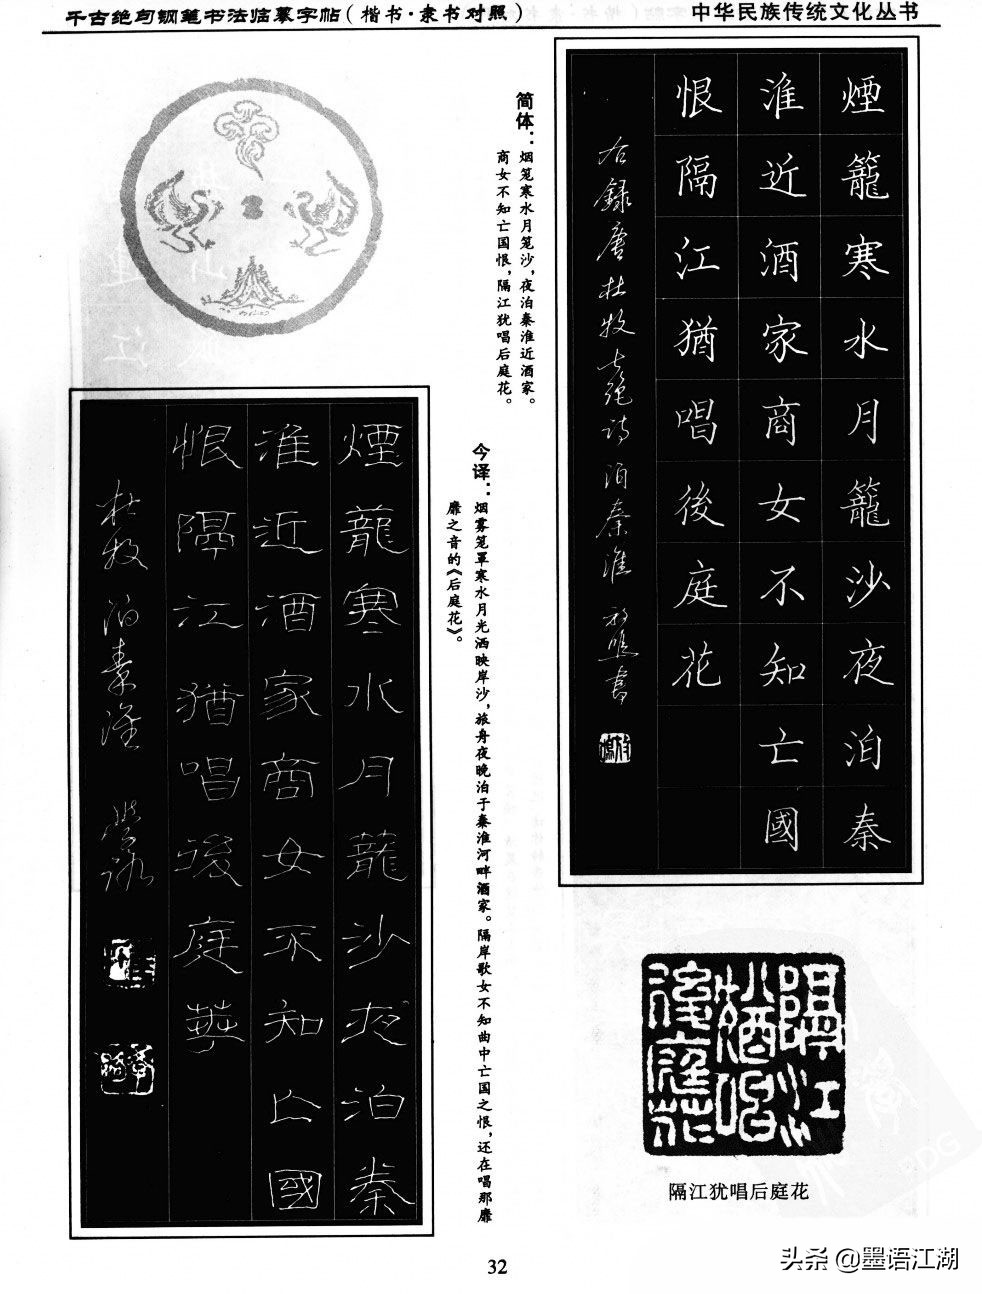 千古绝句钢笔书法临摹字帖(楷书·隶书对照)
中华民族传统文化丛书
煙籠寒水月籠沙夜泊秦
淮近酒家商女不知亡國
恨隔江猶唱後庭花
右錄唐杜牧七绝诗泊秦淮
简体：烟笼寒水月笼沙，夜泊秦淮近酒家。
商女不知亡国恨，隔江犹唱后庭花。
今译：烟雾笼罩寒水月光洒映岸沙，旅舟夜晚泊于秦淮河畔酒家。隔岸歌女不知曲中亡国之恨，还在唱那靡
靡之音的《后庭花》。
煙蘢寒水月蘢沙夜泊秦
淮近酒家商女不知亡國
恨隔江猶唱後庭華
杜牧泊秦淮
隔江
猶唱
後庭花
隔江犹唱后庭花
32
头条 @墨语江湖